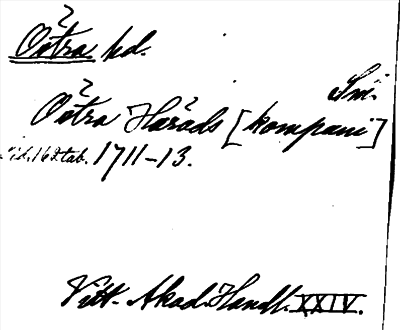 Östra hd.
Smi.
Östra Härads [kompani]
sid. 162 tab. 1711-13.
Vitt. Akad. Handl. XXIV.